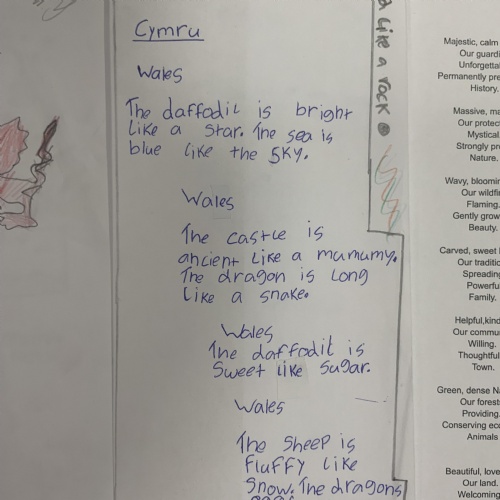 Cymru
Wales
The daffodil is bright
like a star. The sea is
blue like the sky.
Wales
The castle is
ancient like a mamumy.
The dragon is long
like a snake.
Wales
The daffodil is
sweet like sugar.
Wales
The sheep is
fluffy like
snow. The dragons
like a rock
Majestic, calm
Our
Unforgettable
Permanently
History.
Massive,
Our
Mystical
Strongly
Nature.
Wavy,
Our
Flaming.
Gently
Beauty.
Carved, sweet
Our
Spreading
Powerful
Family.
Helpful,kind
Our
Willing.
Town.
Green, dense
Our
Providing.
Conserving
Animals
Beautiful,
Our land.